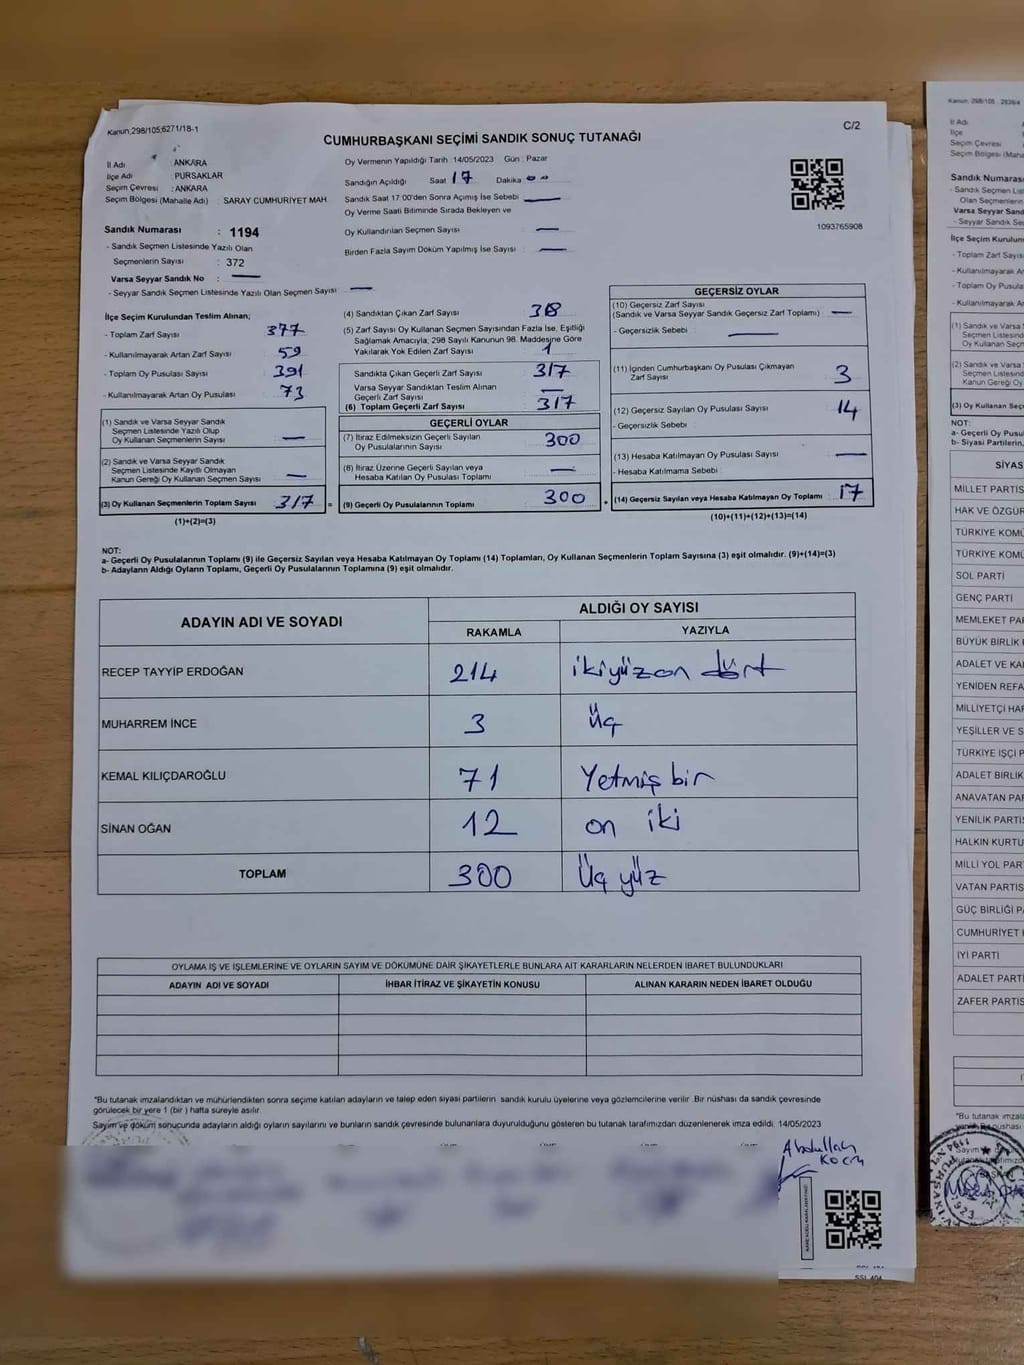 Kanun,298/105;6271/18-1
C/2
CUMHURBAŞKANI SEÇİMİ SANDIK SONUÇ TUTANAĞI
İl Adı : ANKARA
İlçe Adı : PURSAKLAR
Seçim Çevresi : ANKARA
Seçim Bölgesi (Mahalle Adı) : SARAY CUMHURİYET MAH.
Sandık Numarası : 1194
- Sandık Seçmen Listesinde Yazılı Olan
Seçmenlerin Sayısı : 372
Varsa Seyyar Sandık No :
- Seyyar Sandık Seçmen Listesinde Yazılı Olan Seçmen Sayısı
Oy Vermenin Yapıldığı Tarih 14/05/2023 Gün : Pazar
Sandığın Açıldığı Saat 17 Dakika 00
Sandık Saat 17:00'den Sonra Açılmış İse Sebebi
Oy Verme Saati Bitiminde Sırada Bekleyen ve
Oy Kullandırılan Seçmen Sayısı
Birden Fazla Sayım Döküm Yapılmış İse Sayısı
1093765908
İlçe Seçim Kurulundan Teslim Alınan;
- Toplam Zarf Sayısı 377
- Kullanılmayarak Artan Zarf Sayısı 59
- Toplam Oy Pusulası Sayısı 391
- Kullanılmayarak Artan Oy Pusulası 73
(1) Sandık ve Varsa Seyyar Sandık
Seçmen Listesinde Yazılı Olup
Oy Kullanan Seçmenlerin Sayısı
(2) Sandık ve Varsa Seyyar Sandık
Seçmen Listesinde Kayıtlı Olmayan
Kanun Gereği Oy Kullanan Seçmen Sayısı
(3) Oy Kullanan Seçmenlerin Toplam Sayısı 317 =
(1)+(2)=(3)
(4) Sandıktan Çıkan Zarf Sayısı 318
(5) Zarf Sayısı Oy Kullanan Seçmen Sayısından Fazla İse, Eşitliği
Sağlamak Amacıyla; 298 Sayılı Kanunun 98. Maddesine Göre
Yakılarak Yok Edilen Zarf Sayısı 1
Sandıkta Çıkan Geçerli Zarf Sayısı 317
Varsa Seyyar Sandıktan Teslim Alınan
Geçerli Zarf Sayısı
(6) Toplam Geçerli Zarf Sayısı 317
GEÇERLİ OYLAR
(7) İtiraz Edilmeksizin Geçerli Sayılan
Oy Pusulalarının Sayısı 300
(8) İtiraz Üzerine Geçerli Sayılan veya
Hesaba Katılan Oy Pusulası Toplamı
(9) Geçerli Oy Pusulalarının Toplamı 300 +
GEÇERSİZ OYLAR
(10) Geçersiz Zarf Sayısı
(Sandık ve Varsa Seyyar Sandık Geçersiz Zarf Toplamı)
- Geçersizlik Sebebi
(11) İçinden Cumhurbaşkanı Oy Pusulası Çıkmayan
Zarf Sayısı 3
(12) Geçersiz Sayılan Oy Pusulası Sayısı 14
- Geçersizlik Sebebi
(13) Hesaba Katılmayan Oy Pusulası Sayısı
- Hesaba Katılmama Sebebi
(14) Geçersiz Sayılan veya Hesaba Katılmayan Oy Toplamı 17
(10)+(11)+(12)+(13)=(14)
NOT:
a- Geçerli Oy Pusulalarının Toplamı (9) ile Geçersiz Sayılan veya Hesaba Katılmayan Oy Toplamı (14) Toplamları, Oy Kullanan Seçmenlerin Toplam Sayısına (3) eşit olmalıdır. (9)+(14)=(3)
b- Adayların Aldığı Oyların Toplamı, Geçerli Oy Pusulalarının Toplamına (9) eşit olmalıdır.
ADAYIN ADI VE SOYADI
ALDIĞI OY SAYISI
RAKAMLA YAZIYLA
RECEP TAYYİP ERDOĞAN 214 ikiyüzon dört
MUHARREM İNCE 3 Üç
KEMAL KILIÇDAROĞLU 71 Yetmiş bir
SİNAN OĞAN 12 on iki
TOPLAM 300 Üç yüz
OYLAMA İŞ VE İŞLEMLERİNE VE OYLARIN SAYIM VE DÖKÜMÜNE DAİR ŞİKAYETLERLE BUNLARA AİT KARARLARIN NELERDEN İBARET BULUNDUKLARI
ADAYIN ADI VE SOYADI İHBAR İTİRAZ VE ŞİKAYETİN KONUSU ALINAN KARARIN NEDEN İBARET OLDUĞU
*Bu tutanak imzalandıktan ve mühürlendikten sonra seçime katılan adayların ve talep eden siyasi partilerin sandık kurulu üyelerine veya gözlemcilerine verilir .Bir nüshası da sandık çevresinde
görülecek bir yere 1 (bir ) hafta süreyle asılır.
Sayım ve döküm sonucunda adayların aldığı oyların sayılarını ve bunların sandık çevresinde bulunanlara duyurulduğunu gösteren bu tutanak tarafımızdan düzenlenerek imza edildi. 14/05/2023
Abdullah
SSL 404
İl Adı
İlçe
Seçim Çevresi
Seçim Bölgesi
Sandık Numarası
- Sandık Seçmen
Olan Seçmenlerin
Varsa Seyyar
- Seyyar Sandık
İlçe Seçim
- Toplam Zarf
- Kullanılmayarak
- Toplam Oy
- Kullanılmayarak
(1) Sandık ve
Seçmen
Oy Kullanan
(2) Sandık ve
Seçmen
Kanun Gereği
(3) Oy Kullanan
NOT:
a- Geçerli Oy
b- Siyasi Partilerin
MİLLET
HAK VE
TÜRKİYE
TÜRKİYE
SOL PARTİ
GENÇ PARTİ
MEMLEKET
BÜYÜK BİRLİK
ADALET VE
YENİDEN
MİLLİYETÇİ
YEŞİLLER VE
TÜRKİYE İŞÇİ
ADALET BİRLİK
ANAVATAN
YENİLİK
HALKIN
MİLLİ YOL
VATAN
GÜÇ BİRLİĞİ
CUMHURİYET
İYİ PARTİ
ADALET
ZAFER
*Bu tutanak